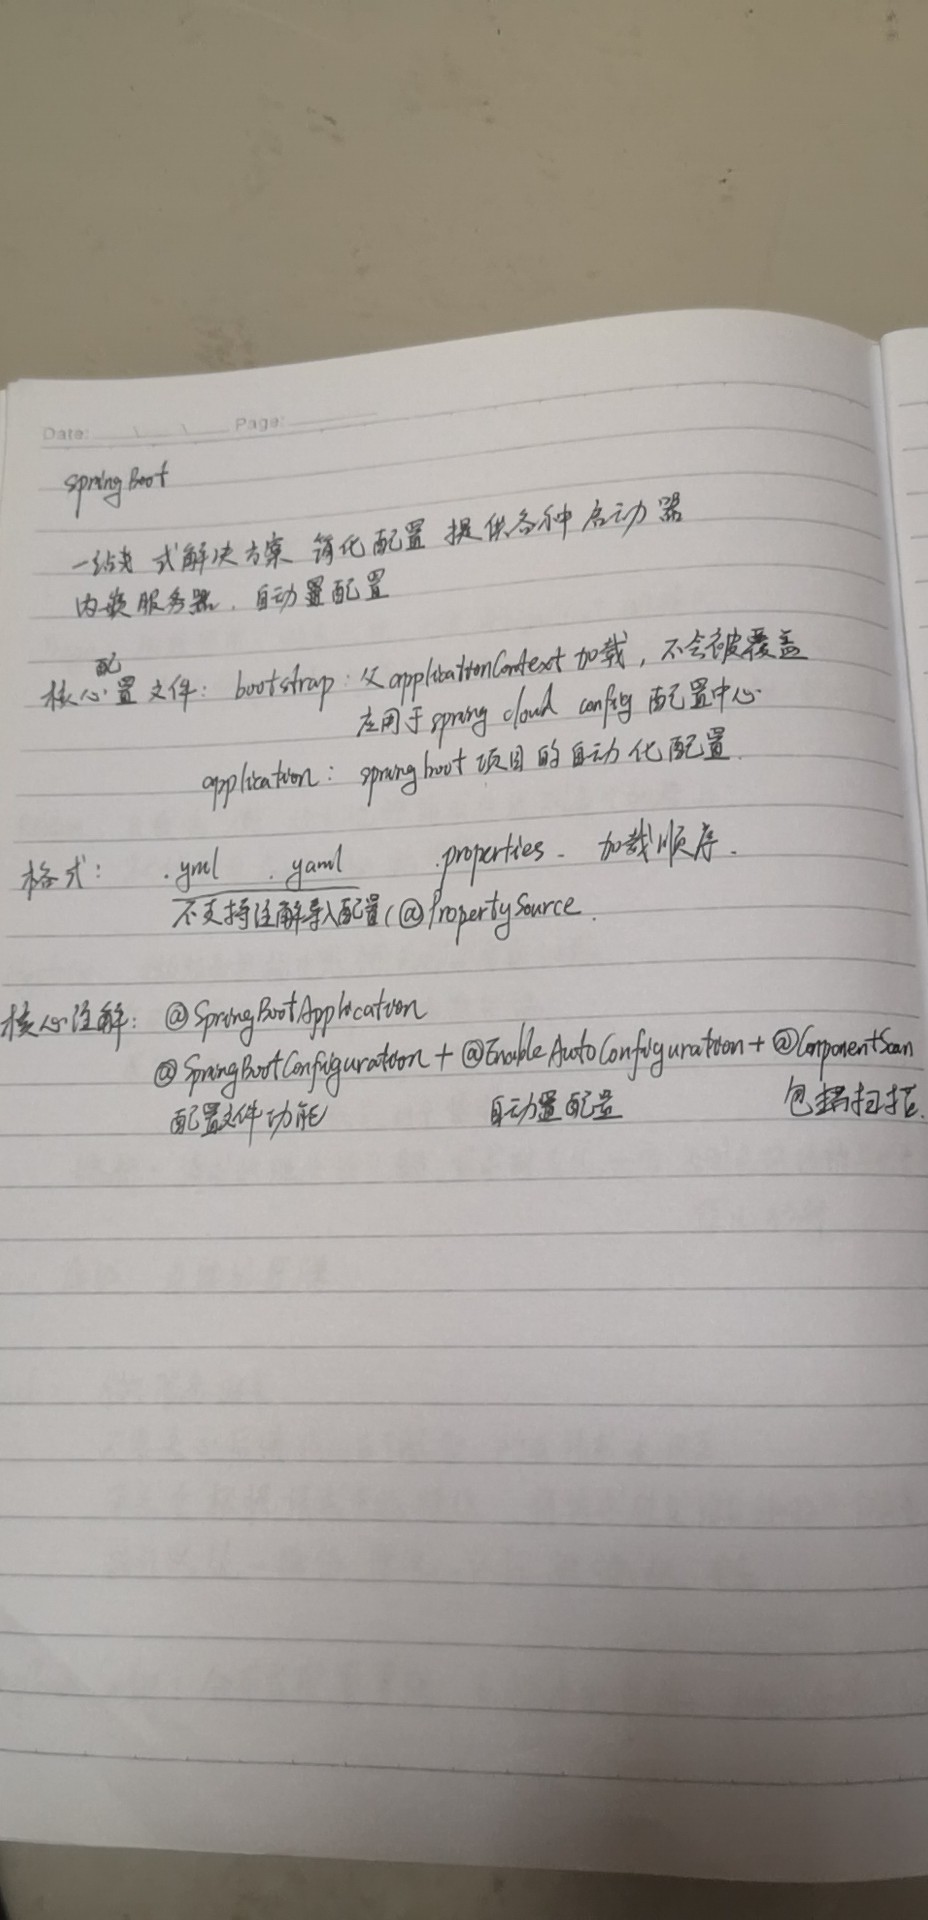 Date: Page:
spring Boot
一站式解决方案 简化配置 提供各种启动器
内嵌服务器.自动置配置
核心配置文件: bootstrap: 父applicationContext加载, 不会被覆盖
应用于spring cloud config 配置中心.
application: spring boot 项目的自动化配置.
格式: .yml .yaml .properties. 加载顺序.
不支持注解导入配置(@PropertySource.
核心注解: @SpringBootApplication
@SpringBootConfiguration + @EnableAutoConfiguration + @ComponentScan
配置文件功能 自动置配置 扫描.